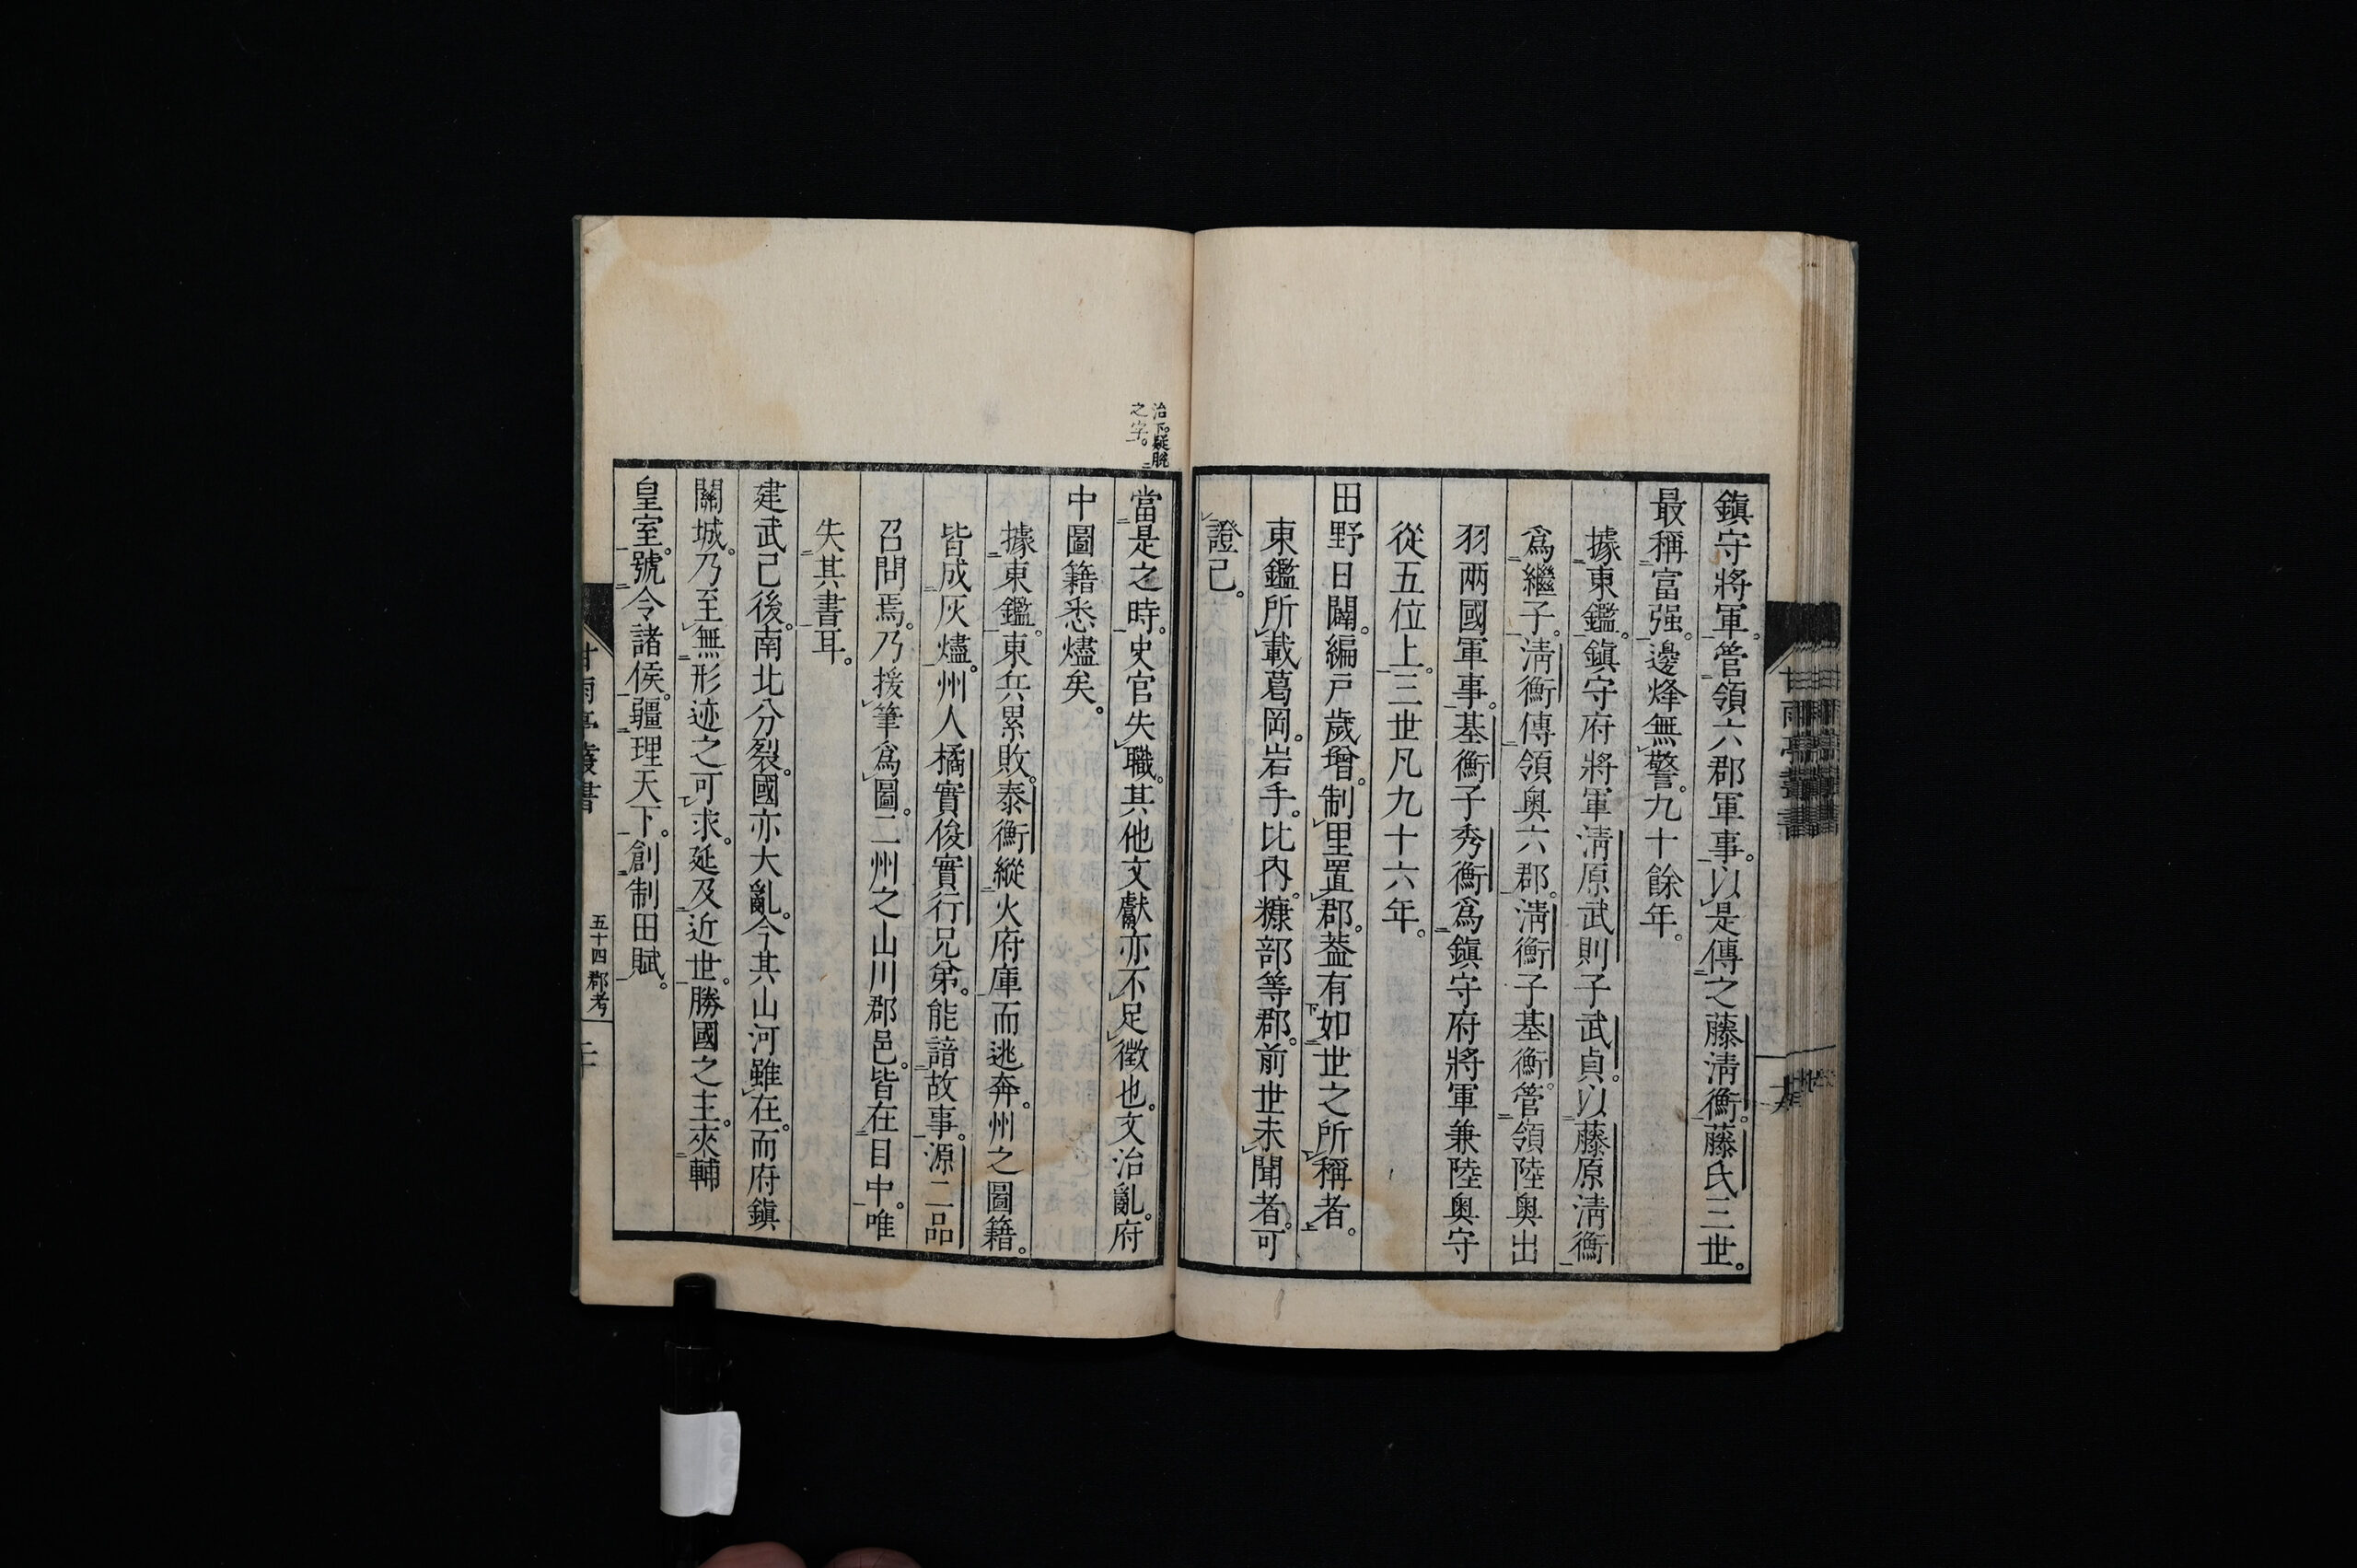 鎭守將軍。管領六郡軍事。以是傳之藤淸衡。藤氏三世。
最稱富强。邊烽無警。九十餘年。
據東鑑。鎭守府將軍淸原武則子武貞。以藤原淸衡
爲繼子。淸衡傳領奥六郡。淸衡子基衡。管領陸奥出
羽兩國軍事。基衡子秀衡爲鎭守府將軍兼陸奥守
從五位上。三世凡九十六年。
田野日闢。編戸歲增。制里置郡。葢有如世之所稱者。
東鑑所載葛岡。岩手。比內。糠部等郡。前世未聞者。可
證已。
治下。疑脫
之字。
當是之時。史官失職。其他文獻亦不足徵也。文治亂。府
中圖籍悉燼矣。
據東鑑。東兵累敗。泰衡縱火府庫而逃奔。州之圖籍。
皆成灰燼。州人橘實俊實行兄弟。能諳故事。源二品
召問焉。乃援筆爲圖。二州之山川郡邑。皆在目中。唯
失其書耳。
建武已後。南北分裂。國亦大亂。今其山河雖在。而府鎭
關城。乃至無形迹之可求。延及近世。勝國之主。夾輔
皇室。號令諸侯。疆理天下。創制田賦。
甘雨亭叢書
五十四郡考